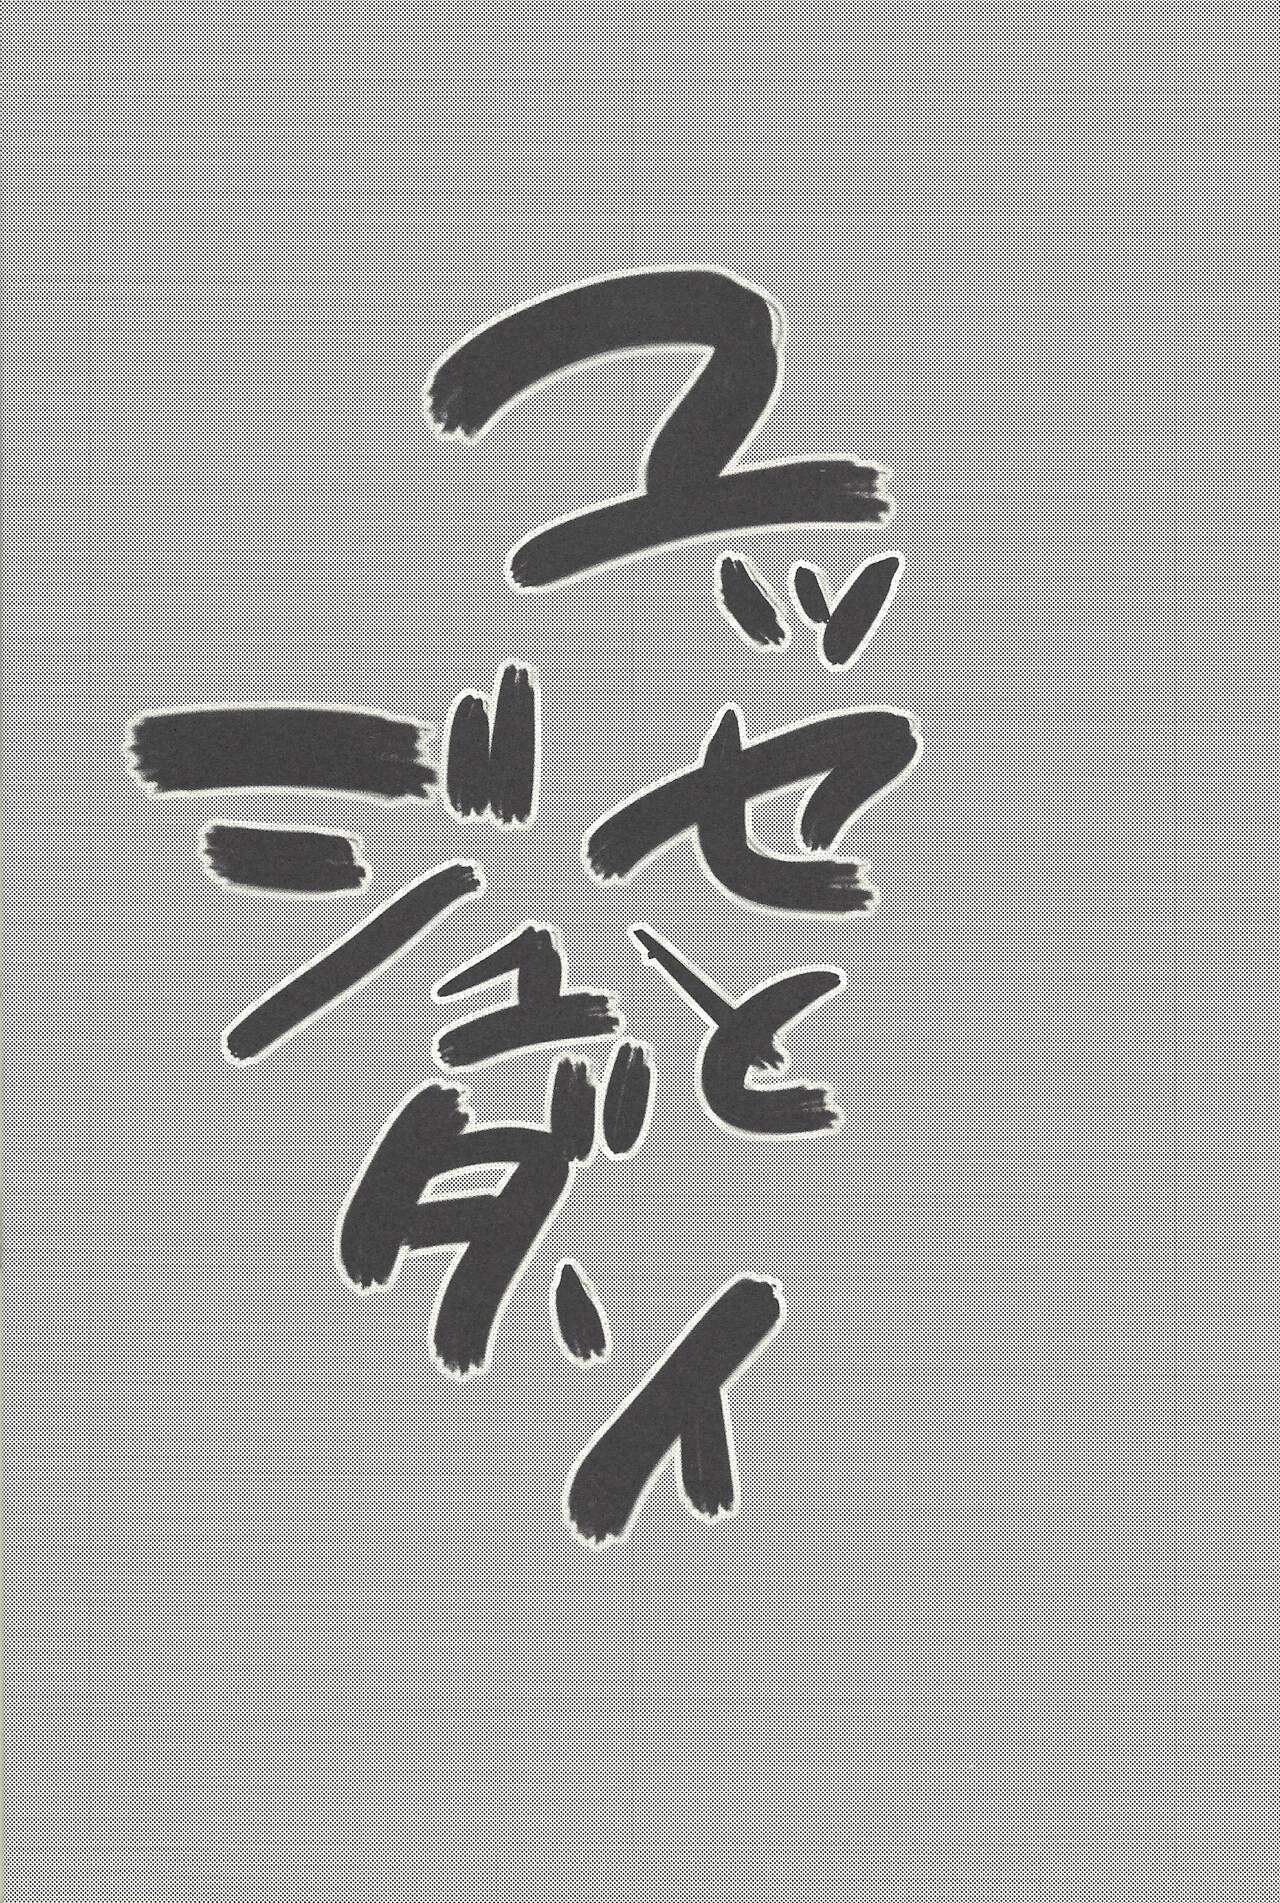 ユッセと
ジュダイ